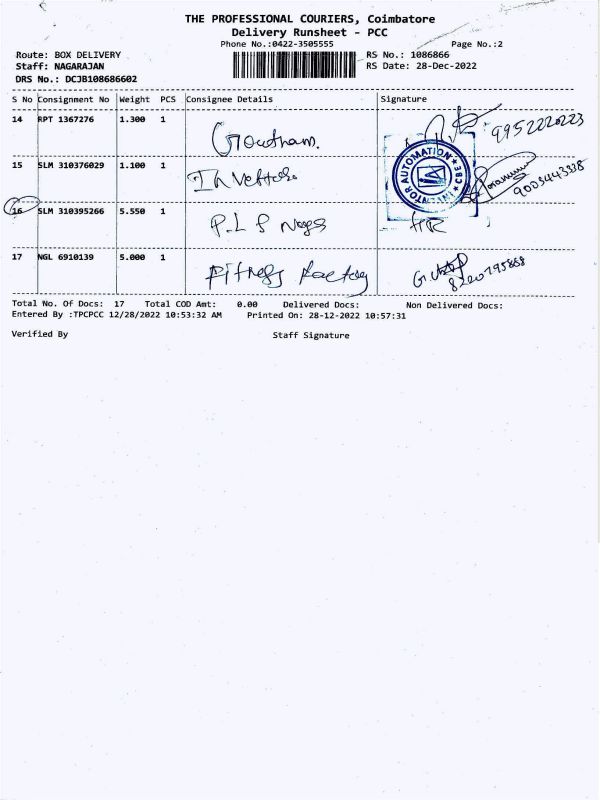 THE PROFESSIONAL COURIERS, Coimbatore
Delivery Runsheet - PCC
Phone No.:0422-3505555 Page No.:2
Route: BOX DELIVERY RS No.: 1086866
Staff: NAGARAJAN RS Date: 28-Dec-2022
DRS No.: DCJB108686602
S No Consignment No Weight PCS Consignee Details Signature
14 RPT 1367276 1.300 1 Goutham. 9952220223
15 SLM 310376029 1.100 1 9003443338
AUTOMATION CBE
16 SLM 310395266 5.550 1 P.L S HR
17 NGL 6910139 5.000 1 Fitness factory 8220795868
Total No. Of Docs: 17 Total COD Amt: 0.00 Delivered Docs: Non Delivered Docs:
Entered By :TPCPCC 12/28/2022 10:53:32 AM Printed On: 28-12-2022 10:57:31
Verified By Staff Signature